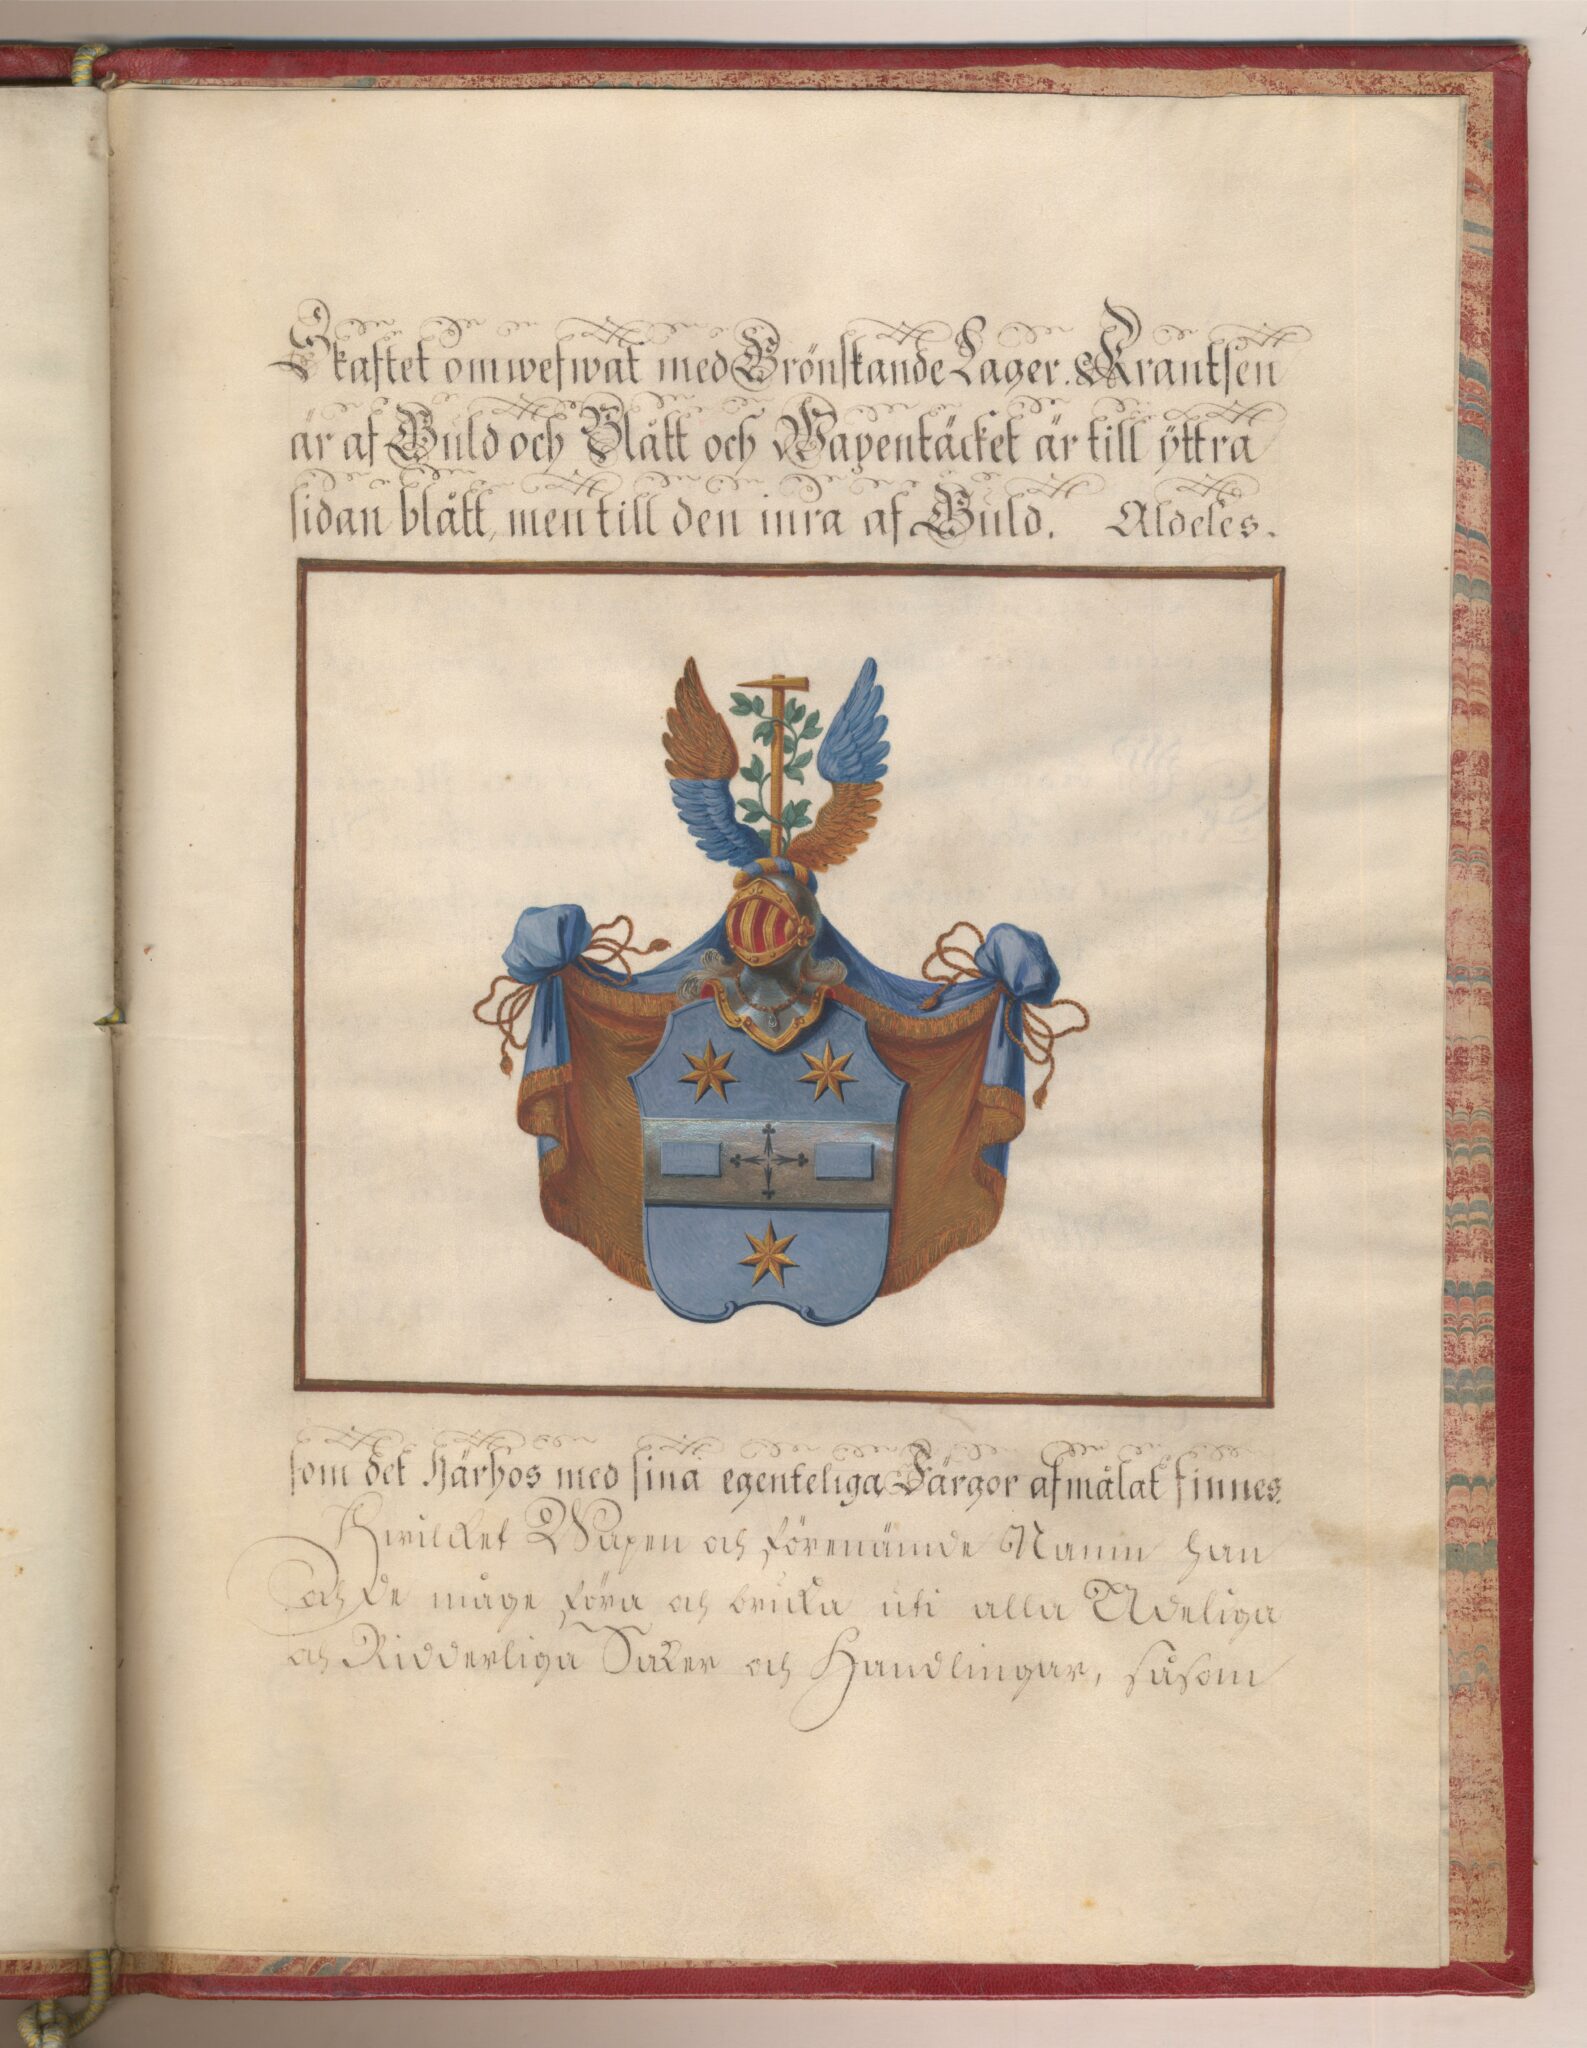 Skaftet omwefwat med Grönskande Lager. Krantsen
är af Guld och Blått och Wapentäcket är till ÿttra
sidan blått, men till den inra af Guld. Aldeles.
som det härhos med sina egenteliga Färgor afmålat finnes.
Hwilket Wapen och förenämde Namn han
och De måge föra och bruka uti alla Adeliga
och Ridderliga Saker och Handlingar, såsom